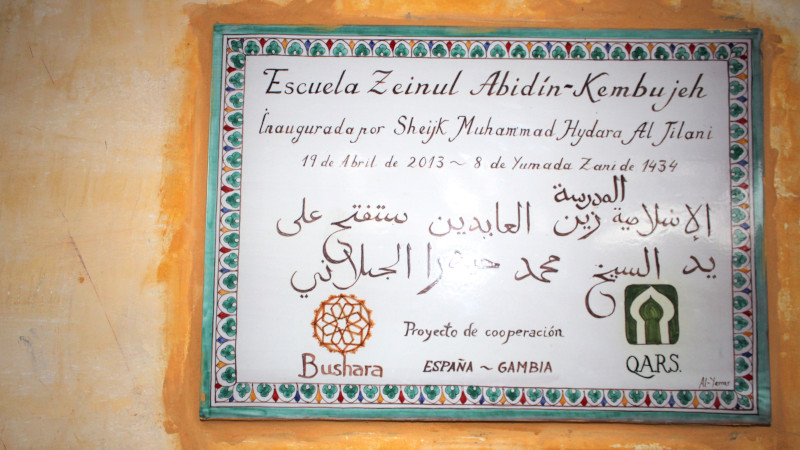 Escuela Zeinul Abidín-Kembujeh
Inaugurada por Sheijk Muhammad Hydara Al Jilani
19 de Abril de 2013 ~ 8 de Yumada Zani de 1434
المدرسة
الإسلامية زين العابدين ستفتح على
يد الشيخ محمد حيدرا الجيلاني
Proyecto de cooperación
Bushara
ESPAÑA ~ GAMBIA
QARS.